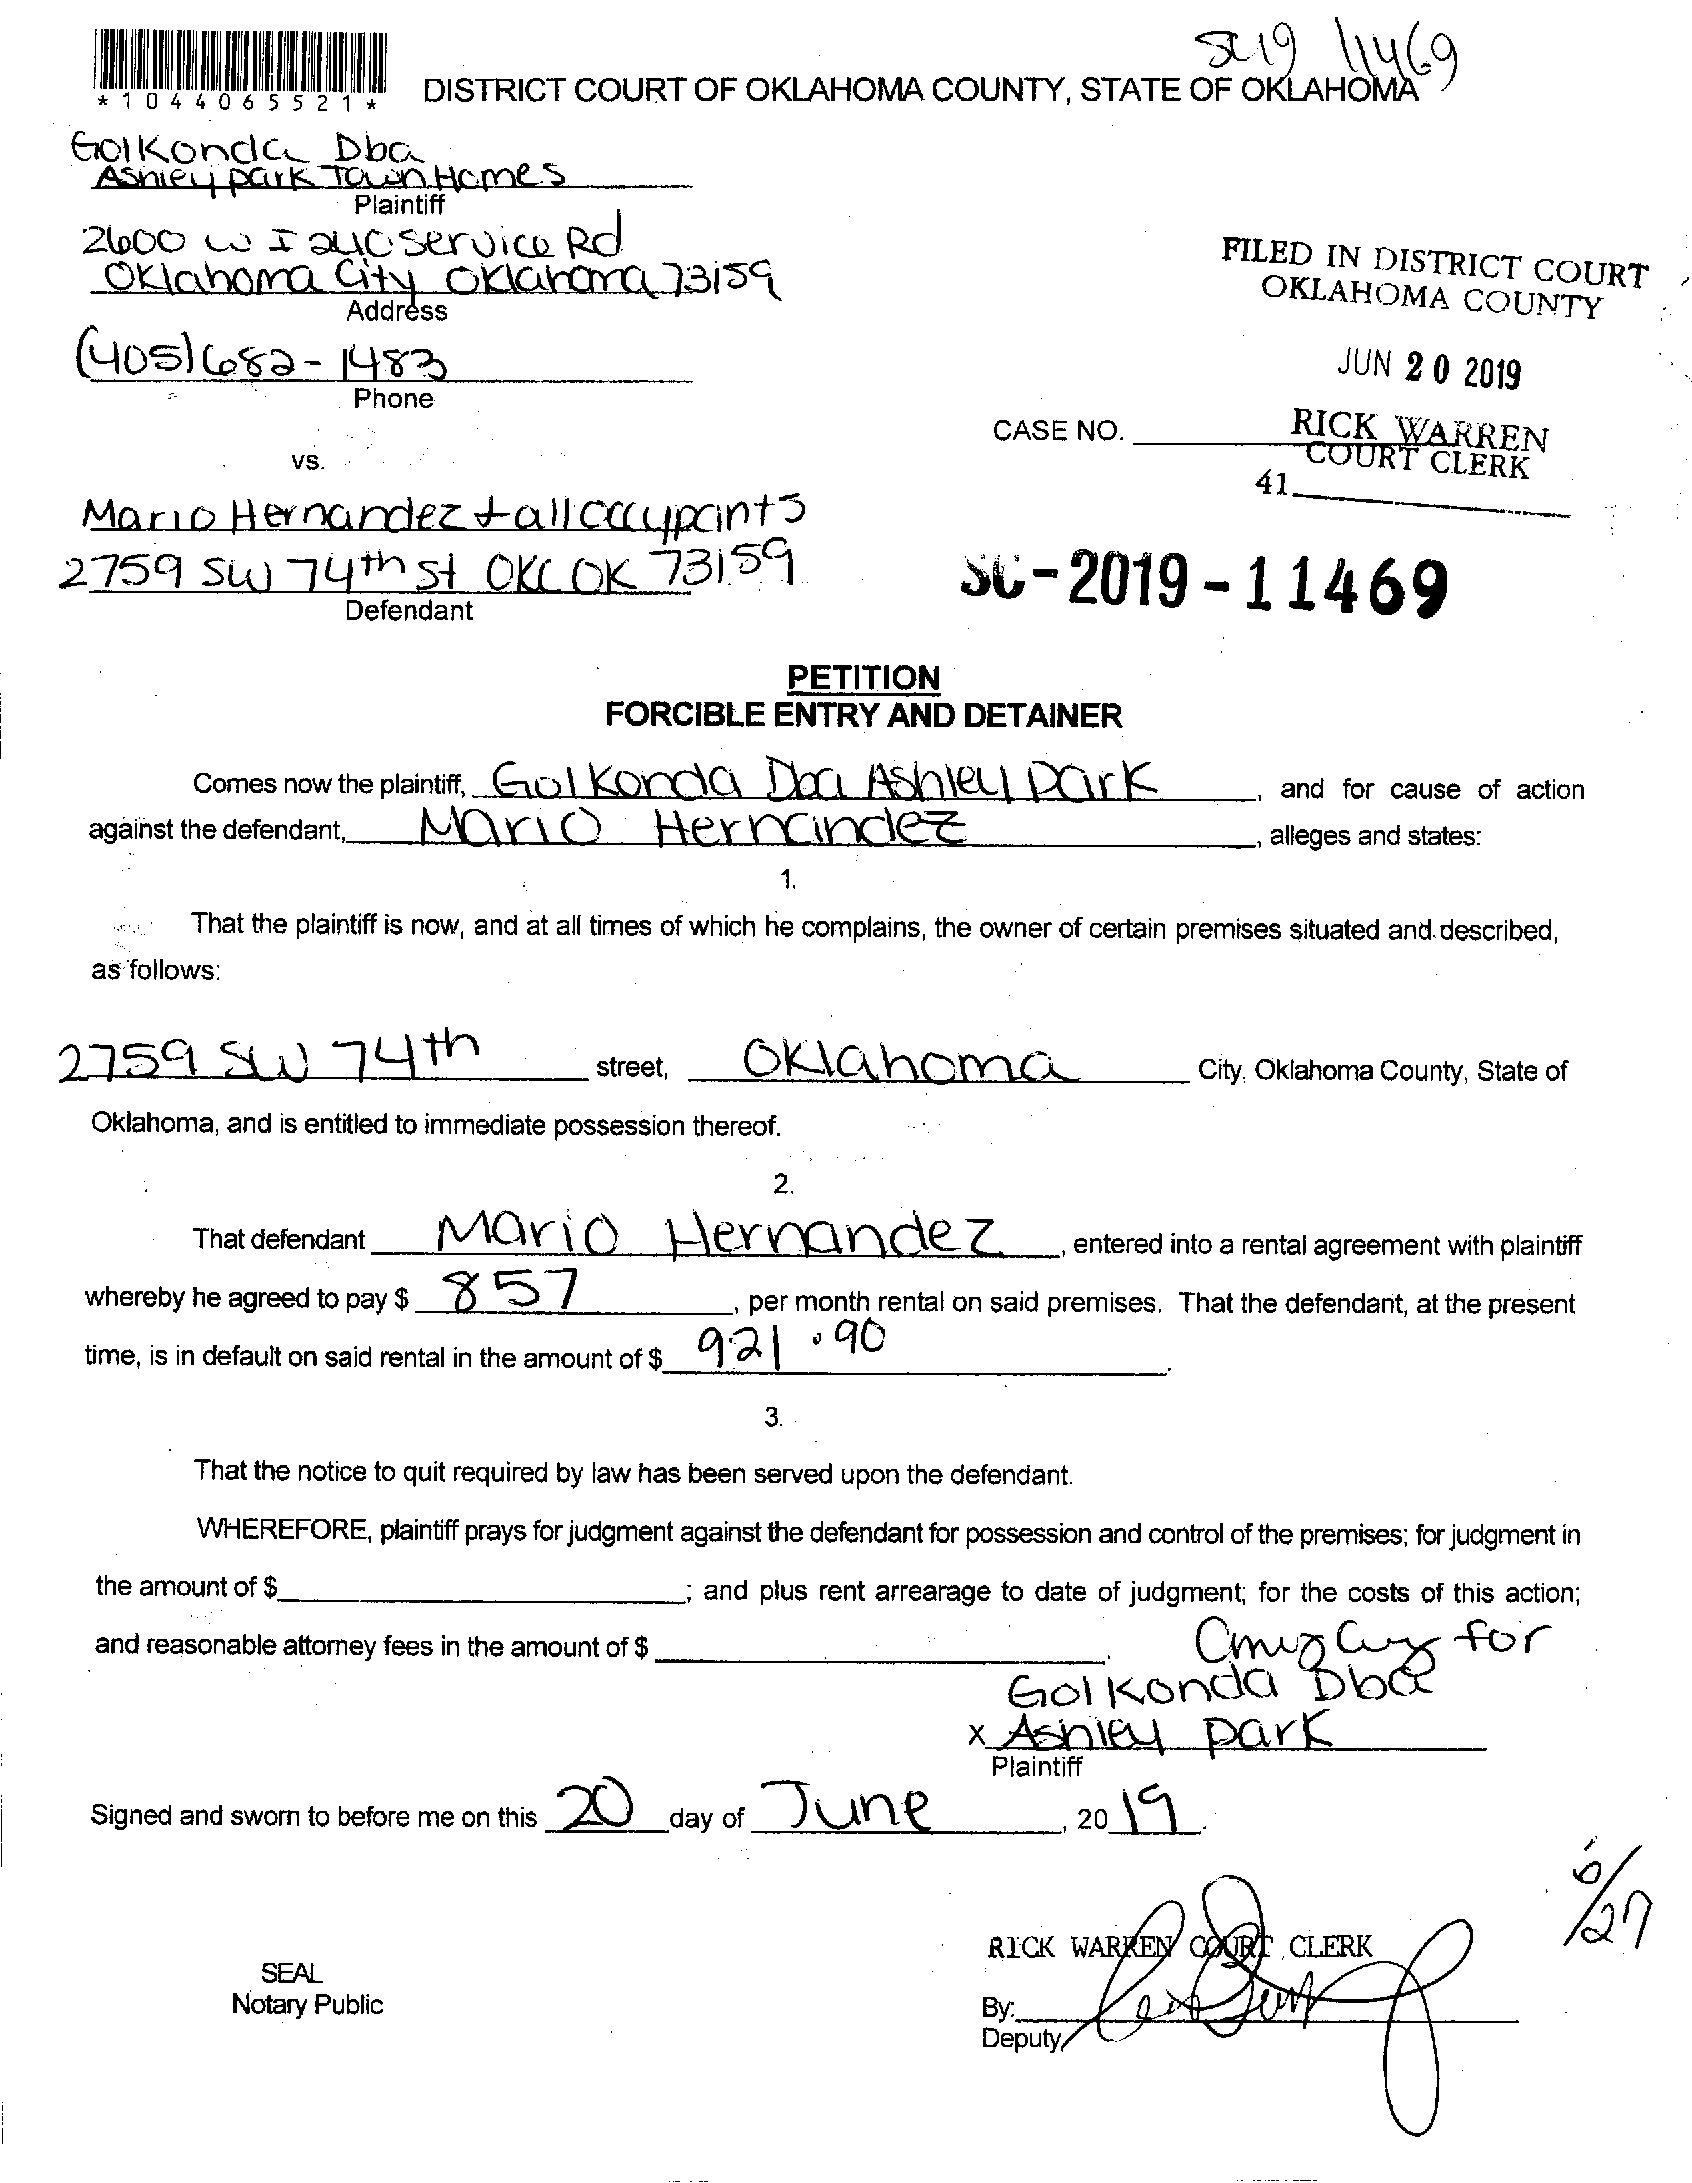 SC19 11469
*1044065521*
DISTRICT COURT OF OKLAHOMA COUNTY, STATE OF OKLAHOMA
Golkonda Dba
Ashley park Town Homes
Plaintiff
2600 W I 240 Service Rd
Oklahoma City Oklahoma 73159
Address
FILED IN DISTRICT COURT
OKLAHOMA COUNTY
(405) 682-1483
Phone
JUN 20 2019
CASE NO.
RICK WARREN
COURT CLERK
41
vs.
Mario Hernandez + all occupants
2759 SW 74th st OKC OK 73159
Defendant
SC-2019-11469
PETITION
FORCIBLE ENTRY AND DETAINER
Comes now the plaintiff, Golkonda Dba Ashley Park, and for cause of action
against the defendant, Mario Hernandez, alleges and states:
1.
That the plaintiff is now, and at all times of which he complains, the owner of certain premises situated and described,
as follows:
2759 SW 74th street, Oklahoma City, Oklahoma County, State of
Oklahoma, and is entitled to immediate possession thereof.
2.
That defendant Mario Hernandez, entered into a rental agreement with plaintiff
whereby he agreed to pay $ 857, per month rental on said premises. That the defendant, at the present
time, is in default on said rental in the amount of $ 921.90.
3.
That the notice to quit required by law has been served upon the defendant.
WHEREFORE, plaintiff prays for judgment against the defendant for possession and control of the premises; for judgment in
the amount of $ ; and plus rent arrearage to date of judgment; for the costs of this action;
and reasonable attorney fees in the amount of $ .
for
Golkonda Dba
x Ashley park
Plaintiff
Signed and sworn to before me on this 20 day of June, 2019.
6/27
RICK WARREN COURT CLERK
SEAL
Notary Public
By:
Deputy